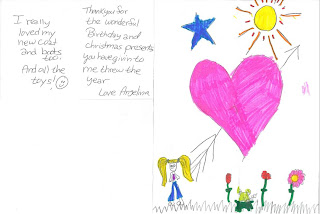 I really
loved my
new coat
and boots
too.
And all the
toys!
Thankyou for
the wonderful
Birthday and
Christmas presents
you have givin to
me threw the
year
Love Angelina